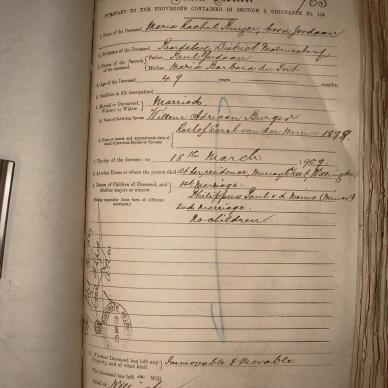 PURSUANT TO THE PROVISIONS CONTAINED IN SECTION 9 ORDINANCE No. 104
1. Name of the Deceased Maria Rachel Burger, born Jordaan
2. Birthplace of the Deceased Paardeberg, District Malmesbury
3. Names of the Parents of the deceased. Father Paul Jordaan
Mother Maria Barbara du Toit
4. Age of the Deceased 49 years months.
5. Condition in life (occupation)
6. Married or Unmarried, Widower or Widow Married
(a) Name of Surviving Spouse Willem Adriaan Burger
(b) Name or names and approximate date of death of previous Spouse or Spouses Roelof Carel van der Merwe 1898
7. The day of the decease 18th March 1909.
8. At what House or where the person died At her residence, Murray Street Wellington
9. Names of Children of Deceased, and whether majors or minors 1st Marriage.
(Stating separately those born of different marriages.) Philippus Paul v. d. Merwe (Minor)
2nd marriage.
No children
10. Whether Deceased has left any Property, and of what kind Immovable & Movable
The Deceased has left Will
Dated at